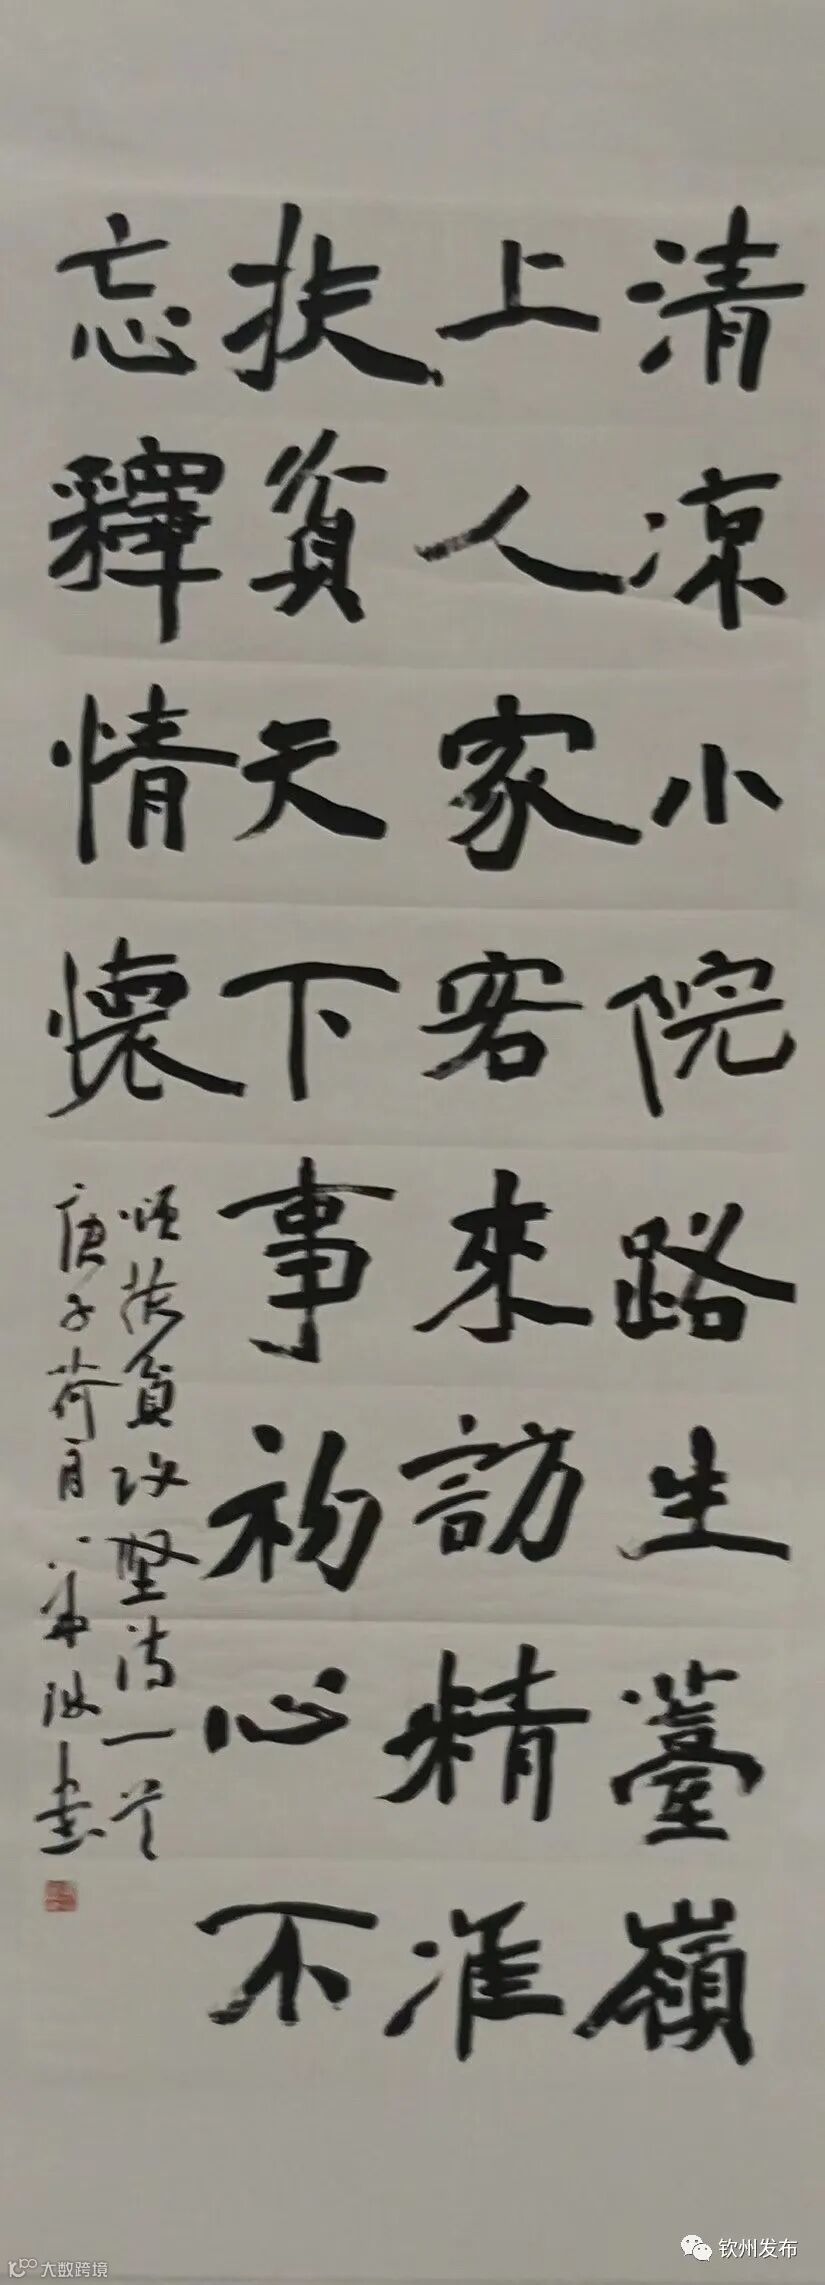 清凉小院路生薹嶺
上人家客來訪精准
扶貧天下事初心不
忘釋情懷
頌扶貧攻坚诗一首
庚子荷月
書
钦州发布
大数跨境